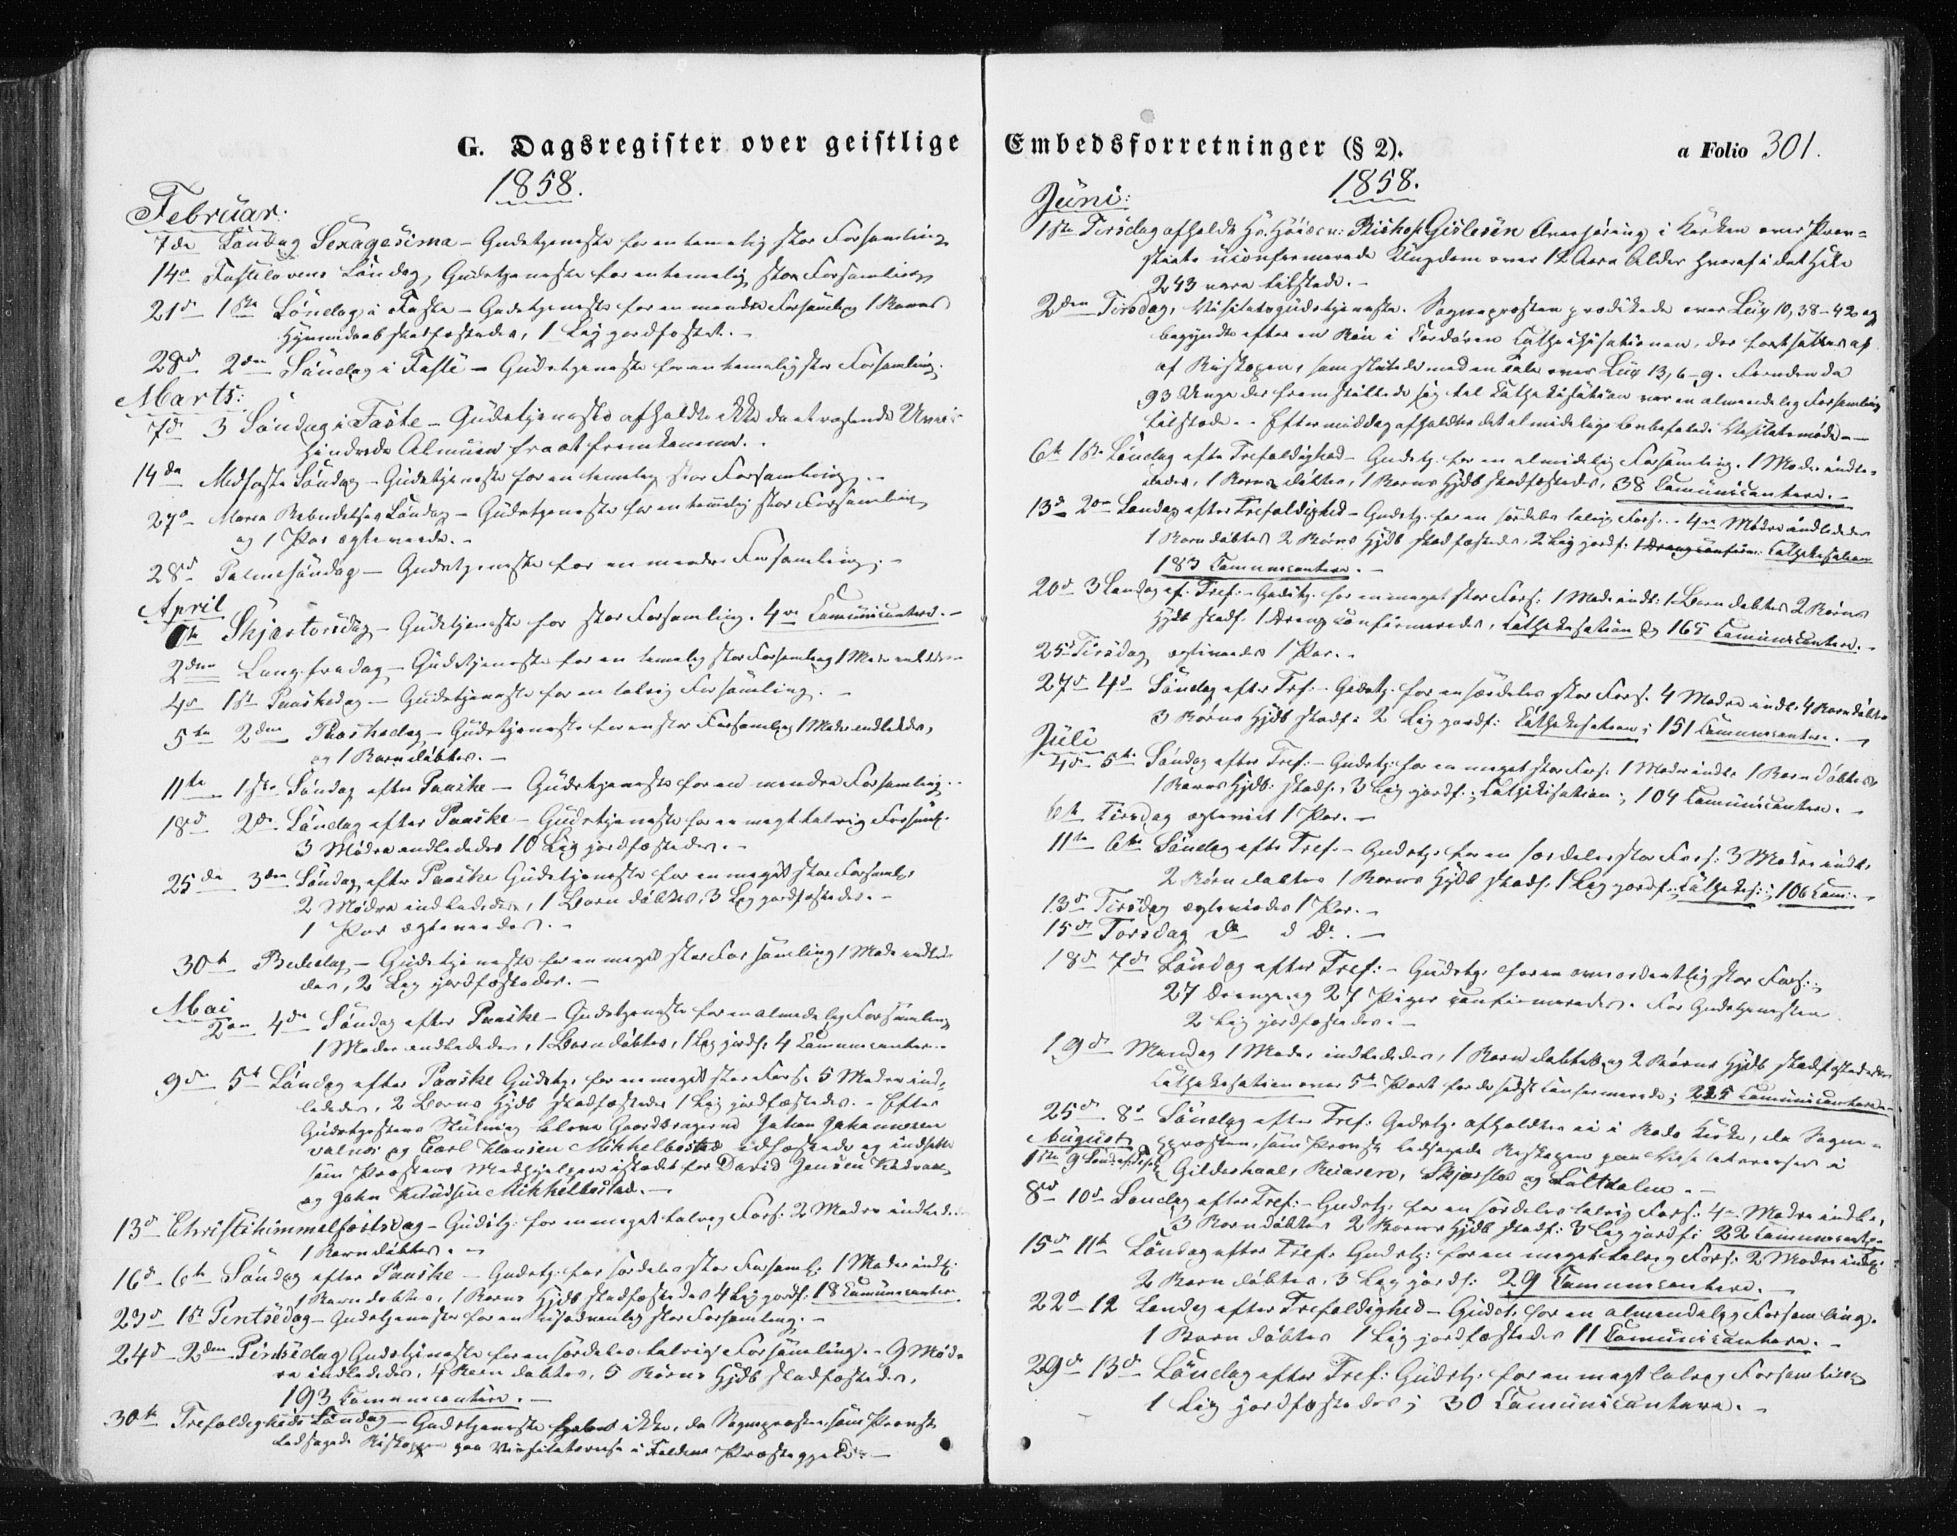 G. Dagsregister over geistlige
1858.
Februar:
7de Søndag Sexagesima – Gudstjeneste for en temelig stor Forsamling
14d Fastelavens Søndag, Gudstjeneste for en temelig stor Forsamling
21d 1ste Søndag i Faste – Gudstjeneste for en mindre Forsamling 1 Barns
Hjemmedaab stadfæstedes, 1 Lig jordfæstet. –
28d 2den Søndag i Faste – Gudstjeneste for en temelig stor Forsamling.
Marts:
7d 3 Søndag i Faste – Gudstjeneste afholdtes ikke da et rasende Uveir
hindrede Almuen fra at fremkomme. –
14de Midfaste Søndag – Gudstjeneste for en temelig stor Forsamling. –
27d Maria Bebudelses Søndag – Gudstjeneste for en temmelig stor Forsamling
og 1 Par ægteviede. –
28d Palmesøndag – Gudstjeneste for en mindre Forsamling. –
April
1te Skjærtorsdag – Gudstjeneste for stor Forsamling. 4re Communicantere. –
2den Langfredag – Gudstjeneste for en temelig stor Forsamling 1 Moder indledet
4d 1ste Paaskedag – Gudstjeneste for en talrig Forsamling. –
5te 2den Paaskedag – Gudstjeneste for en stor Forsamling 1 Moder indledtes,
og 1 Barn døbtes. –
11te 1ste Søndag efter Paaske – Gudstjeneste for en mindre Forsamling. –
18d 2d Søndag efter Paaske – Gudstjeneste for en meget talrig Forsaml.
3 Mødre indlededes 10 Lig jordfæstedes. –
25de 3den Søndag efter Paaske Gudstjeneste for en meget stor Forsaml.
2 Mødre indlededes, 1 Barn døbtes, 3 Lig jordfæstedes. –
1 Par ægteviedes. –
30te Bededag – Gudstjeneste for en meget stor Forsamling 1 Moder indlede-
des, 2 Lig jordfæstedes. –
Mai
2den 4de Søndag efter Paaske – Gudstjeneste for en almindelig Forsamling
1 Moder indlededes, 1 Barn døbtes, 1 Lig jordf. 4 Communicanter. –
9de 5t Søndag efter Paaske Gudstj. for en meget stor Fors. 5 Mødre ind-
lededes, 2 Børns Hjdb stadfæstedes 1 Lig jordfæstedes. – Efter
Gudstjenestens Slutning bleve Gaardbrugerne Johan Johannesen
og Carl Hansen Mikkelbostad edfæstede og indsatte
som Præstens Medhjelpere istedet for David Jensen
og John Knudsen Mikkelbostad. –
13d Christihimmelfartsdag – Gudstj. for en meget talrig Fors. 2 Mødre indled.
1 Barn døbtes. –
16d 6te Søndag efter Paaske – Gudstj. for særdeles stor Forsaml. 1 Moder indl.
1 Barn døbtes, 1 Barns Hjdb stadfæstedes 4 Lig jordf. 18 Communicanter.
23d 1ste Pintsedag – Gudstjeneste for en usædvanlig stor Forsamling. –
24d 2den Pintsedag Gudstjeneste for en særdeles talrig Forsamling. – 9 Mød-
re indlededes, 4 Børn døbtes, 5 Børns Hjdb stadfæstedes,
193 Communicantere. –
30te Trefoldigheds Søndag – Gudstjeneste ikke, da Sognepræsten som Provst
ledsagede Biskoppen paa Visitatsreise i Præstegjeld. –
Embedsforretninger (§ 2).
a Folio 301.
1858.
Juni:
1ste Tirsdag afholdt Hs. Høiærv: Biskop Gislesen Overhøring i Kirken over Præ-
stiets uconfirmerede Ungdom over 12 Aars Alder hvoraf i det Hele
243 vare tilstede. –
2den Tirsdag, Visitatsgudstjeneste. Sognepræsten prædikede over Luc 10, 38–42 og
begyndte efter en Bøn i Chordøren Cathechisationen, der fortsattes af
af Biskopen, som sluttede med en Tale over Luc 13, 6–9. Foruden de
93 Unge der fremstillede sig til Cathekisation var en almindelig Forsamling
tilstede. – Eftermiddag afholdtes det almindelige anbefalede Visitatsmøde. –
6te 1ste Søndag efter Trefoldighed – Gudstj. for en almindelig Forsamling. 1 Moder indle-
dedes, 1 Barn døbtes, 1 Barns Hjdb stadfæstedes, 38 Comunicantere. –
13d 2den Søndag efter Trefoldighed – Gudstj. for en særdeles talrig Fors. – 4re Mødre indlededes
1 Barn døbtes 2 Børns Hjdb stadfæstedes, 2 Lig jordf. Cathekisation
183 Communicantere. –
20d 3 Søndag ef. Tref. – Gudstj. for en meget stor Fors: 1 Moder indl: 1 Barn døbtes 2 Børns
Hjdb stadf. 1 Dreng confirmeredes. Cathekisation og 165 Comunicantere. –
25d Tirsdag ægteviedes 1 Par. –
27d 4d Søndag efter Trf. – Gudstj. for en særdeles stor Fors. 4 Mødre indl. 4 Børn døbtes
3 Børns Hjdb stadf: 2 Lig jordf: Cathekisation; 151 Communicantere. –
Juli
4d 5te Søndag efter Tref. – Gudstj. for en meget stor Fors. 1 Moder indl. 1 Barn døbtes
1 Barns Hjdb. stadf., 3 Lig jordf.; Cathekisation; 104 Comunicantere. –
6te Tirsdag ægteviet 1 Par. –
11te 6te Søndag efter Tref. – Gudstj. for en særdeles stor Fors: 3 Mødre indl.
2 Børn døbtes 1 Barns Hjdb stadf. 1 Lig jordf.; Cathekis:; 106 Com: –
13d Tirsdag ægteviedes 1 Par. –
15d Torsdag do d do. –
18d 7d Søndag efter Tref: – Gudstj. for en overordentlig stor Fors:
27 Drenge og 27 Piger confirmeredes. Før Gudstjenesten
2 Lig jordfæstedes. –
19d Mandag 1 Moder indlededes, 1 Barn døbtes og 2 Børns Hjdb stadfæstedes
Cathekisation over 5te Part for de sidst confirmerede; 225 Comunicantere. –
25d 8d Søndag efter Tref: Gudstj. afholdtes ei i Rødø Kirke, da Sogne-
August præsten, som Provst ledsagede Biskopen paa Visitatsreiser i
1ste 9 Søndag ef Tref. Gildeskaal, Beiaren, Skjærstad og Saltdalen. –
8d 10d Søndag efter Tref: – Gudstj. for en særdeles talrig Fors: 4re Mødre indl.,
3 Børn døbtes 2 Børns Hjdb stadf: 3 Lig jordf: 22 Communicantere
15d 11te Søndag efter Tref: Gudstj: for en meget talrig Fors: 2 Mødre indl.
2 Børn døbtes, 3 Lig jordf: 29 Communicantere. –
22d 12 Søndag efter Trefoldighed – Gudst. for en almindelig Forsamling.
1 Barn døbtes 1 Lig jordfæstedes 11 Comunicantere. –
29d 13d Søndag efter Tref: Gudstj. for en meget talrig Forsamling
1 Lig jordfæstedes; 30 Comunicantere. –